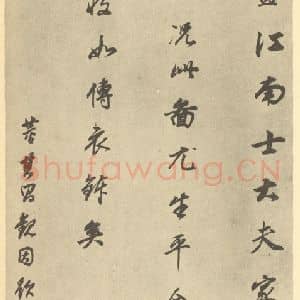 江南士大夫家
况此啚尤生平
如傳衣鉢矣
董其昌觀因
Shufawang.CN